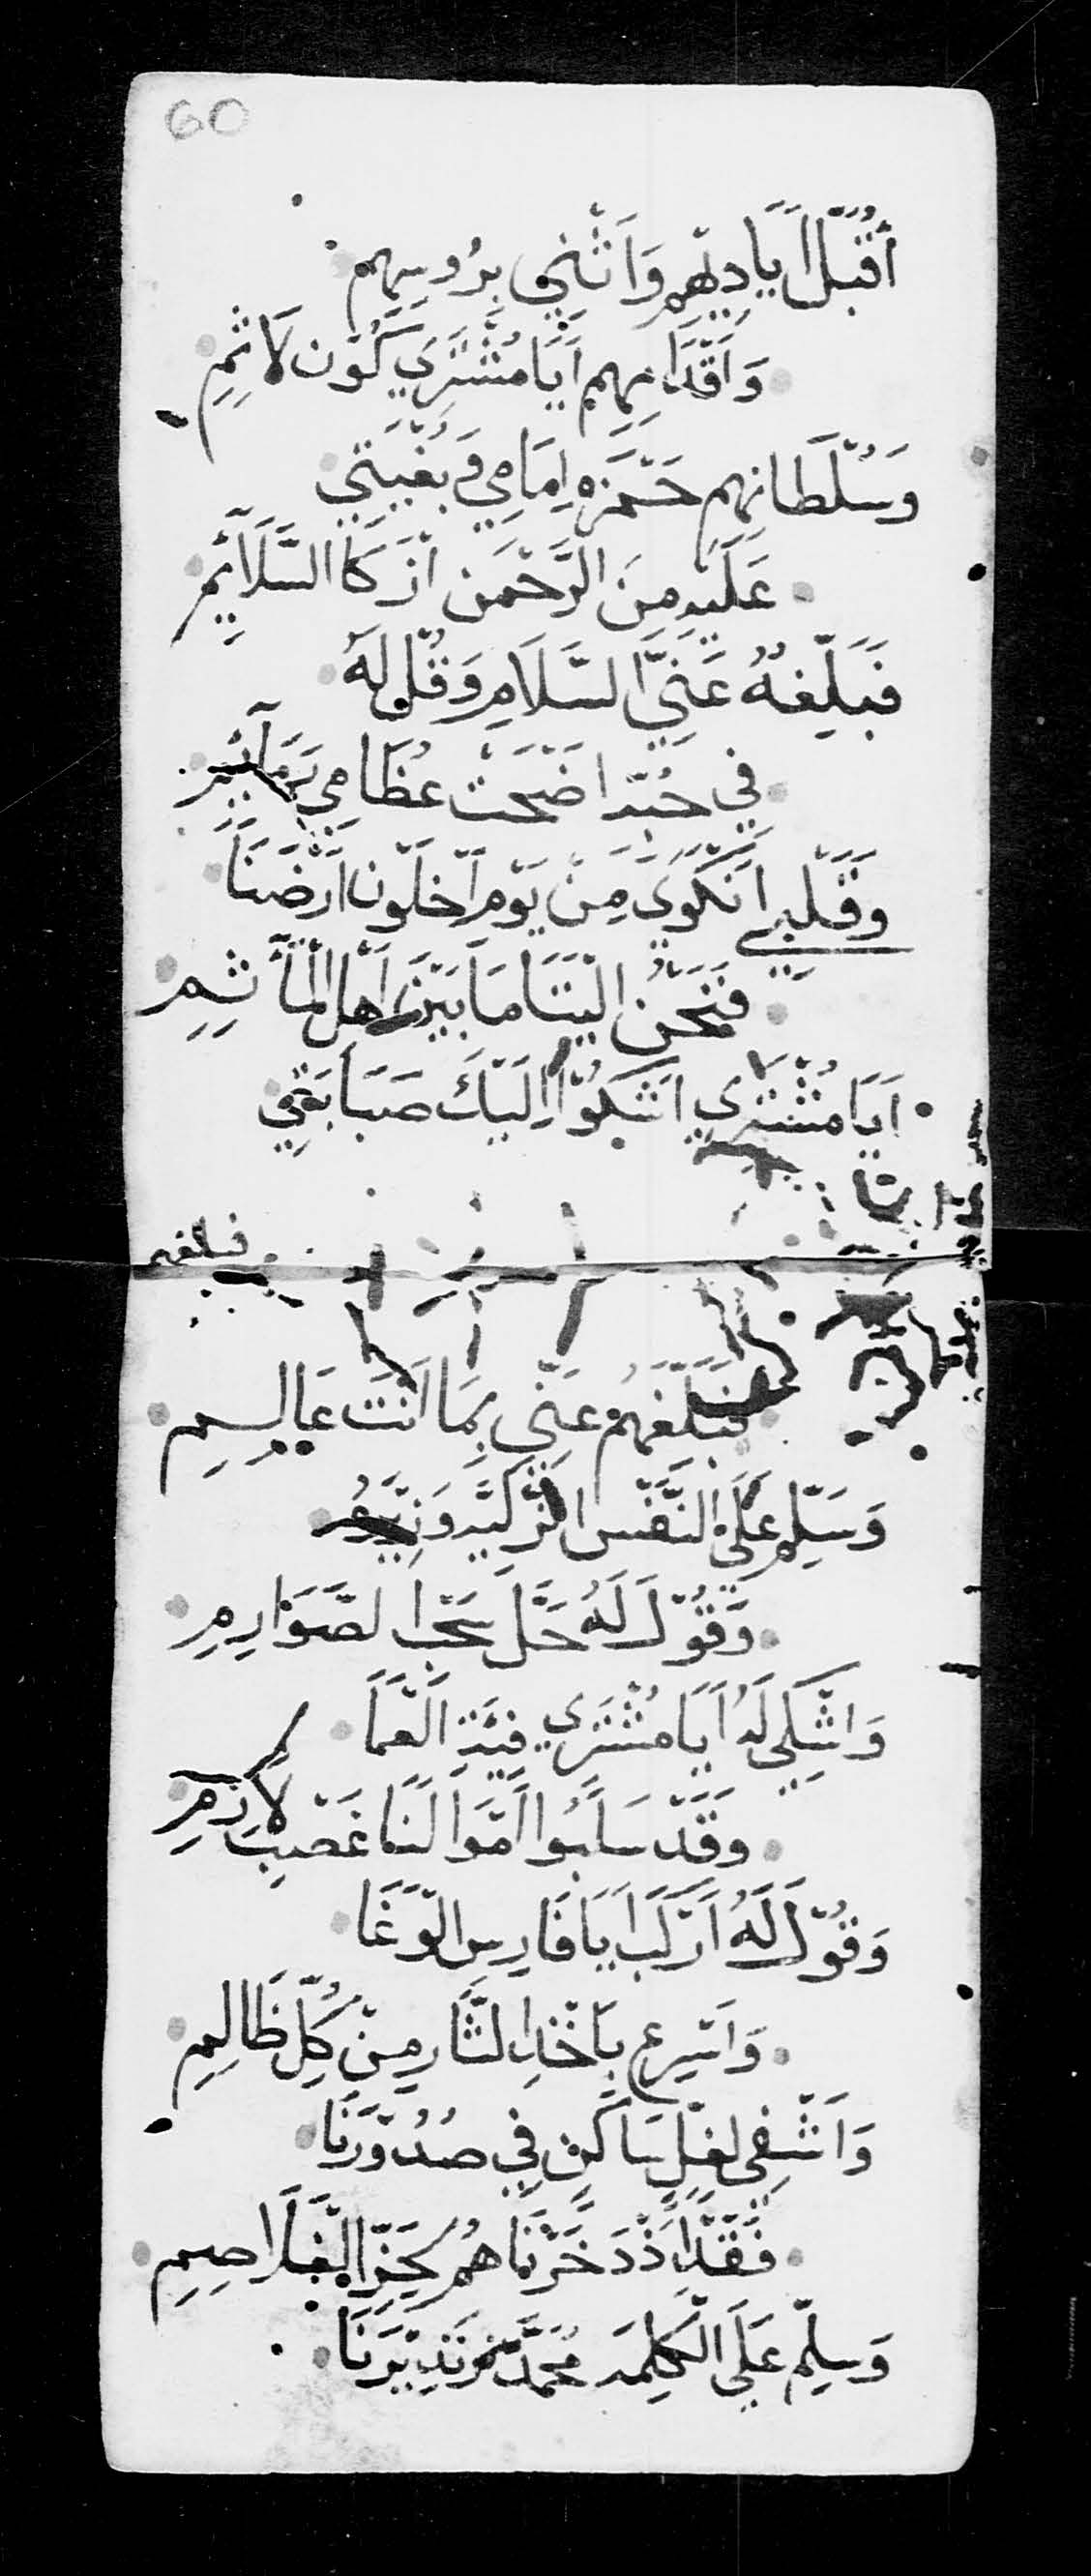 60
أُقَبِّلُ اَيَادِيهِم وَاَنْثَنِي بِرُوسِهِم
وَاَقْدَامِهِم اَيَا مُشْتَرَي كُوْن لَاثِمِ
وَسُلْطَانِهِم حَمْزَه اِمَامِي وَبُغْيَتِي
عَلَيهِ مِنَ الرَّحْمَن اَزْكَا السَّلَآئِمِ
فَبَلِّغهُ عَنِّي السَّلَامِ وَقُل لَهُ
في حُبّه اضْحَتْ عُظَامِي رَمَآئِمِ
وَقَلْبِي اَنْكَوَى مِنْ يَوْم اَخْلَوْن اَرْضَنَا
فَنَحْنُ الْيَتَامَا بَيْنَ اَهْل الْمَآثِمِ
اَيَا مُشْتَرَي اَشْكُوْا اِلَيْكَ صَبَابَتِي
فبلغهم
فَبَلِّغْهُمُ عَنِّي بِمَا اَنْتَ عَالِمِ
وَسَلِّم عَلَى النَّفْس الزَّكِيَّه
وَقُوْل لَهُ حَلّ سَحْب الصَّوَارِمِ
وَاشْكِي لَهُ اَيَا مُشْتَرَي فِيَّةِ الْعَمَا
وَقَدْ سَلَبُوا اَمْوَالَنَا غَصْبِ لَازِمِ
وَقُوْل لَهُ اَرْكَب اَيَا فَارِس الْوَغَا
وَاَسْرِع بِاَخْذِ الثَّار مِنْ كُلِّ ظَالِمِ
وَاَشْفِي لِغِلٍّ سَاكِنٍ فِي صُدُوْرَنَا
لِحَزِّ الْغَلَاصِمِ
وَسلِّم عَلَى الْكَلِمَه مُحَمَّد نَذِيْرَنَا